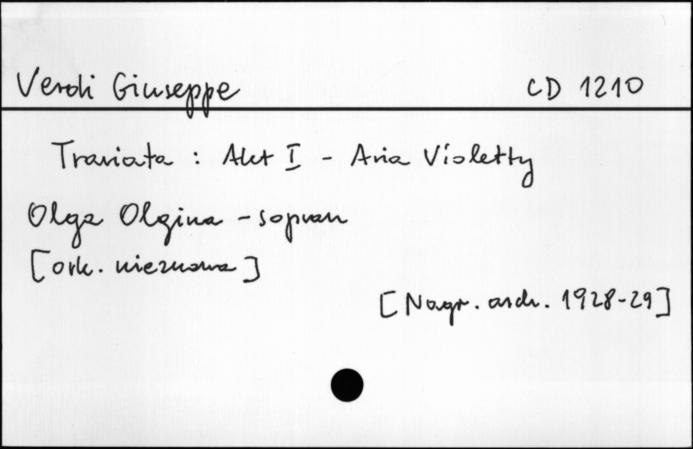 Verdi Giuseppe CD 1210
Traviata : Akt I - Aria Violetty
Olga Olgina - sopran
[ork. nieznana]
[Nagr. arch. 1928-29]